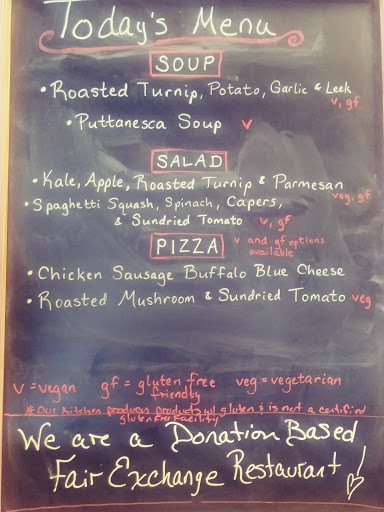 Today's Menu
SOUP
• Roasted Turnip, Potato, Garlic & Leek
v, gf
• Puttanesca Soup v
SALAD
• Kale, Apple, Roasted Turnip & Parmesan
veg, gf
• Spaghetti Squash, Spinach, Capers,
& Sundried Tomato v, gf
PIZZA v and gf options
available
• Chicken Sausage Buffalo Blue Cheese
• Roasted Mushroom & Sundried Tomato veg
v = vegan gf = gluten free veg = vegetarian
friendly
* Our kitchen produces products w/ gluten & is not a certified
gluten free facility
We are a Donation Based
Fair Exchange Restaurant!